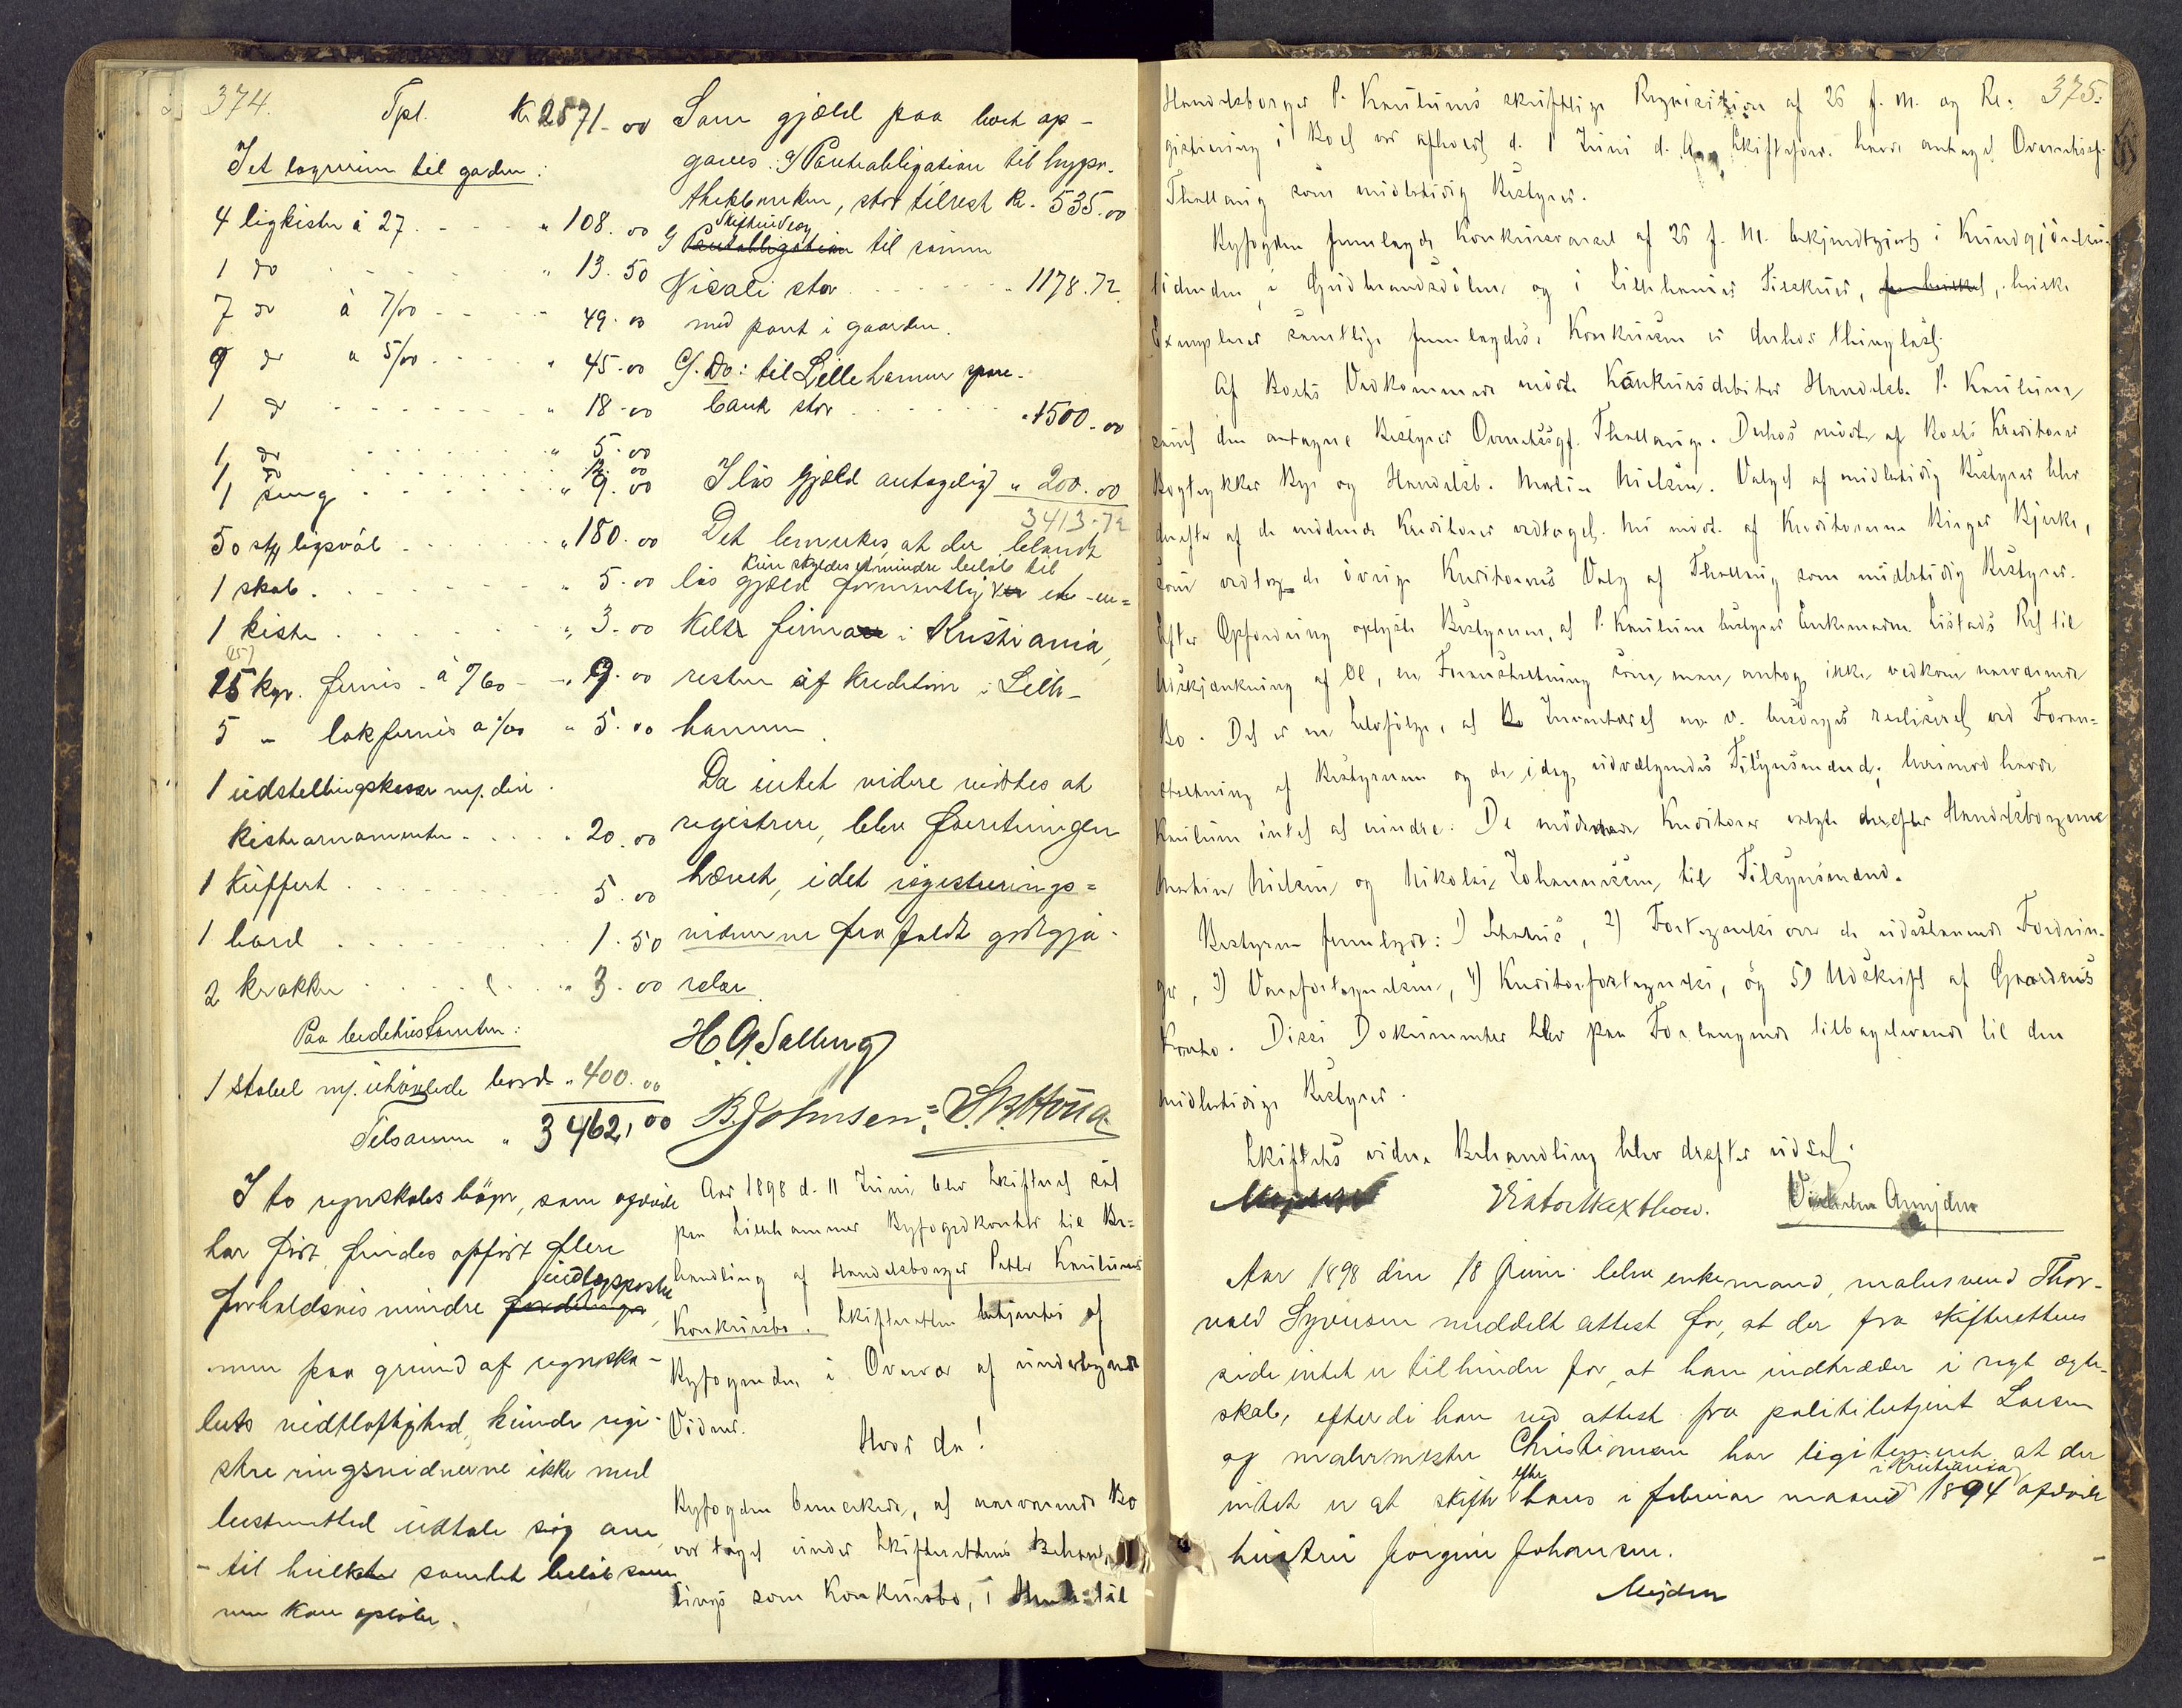 374.
Tpl. Kr 2571-00
I et lagerrum til gaden:
4 ligkister à 27. " 108.00
1 do " 13.50
7 do à 7/00 49.00
9 do a 5/00 " 45-00
1 do " 18-00
1 do " 5-00
1 do 12.00
1 seng " 9.00
50 stk ligsvøb " 180.00
1 skab " 5-00
1 kiste " 3.00
15 kgr. fernis à 0/60 " 9.00
5 " lakfernis a 1/00 " 5.00
1 udstillingskasse m/. div.
kisteornamenter " 20.00
1 kuffert 5.00
1 bord 1.50
2 krakker " 3.00
Paa bedehustomten:
1 stabel m/. uhøvlede bord " 400.00
Tilsammen " 3462,00
I to regnskabsbøger, som afdøde
har ført, findes opført flere
indtægtsposter
forholdsvis mindre
men paa grund af regnska-
bets vidtløftighed, kunde regi-
streringsvidnerne ikke med
bestemthed udtale sig om
- til hvilket samlet beløb som
men kan opløbe.
Som gjæld paa boet op-
gaves: Panteobligation til hypo-
thekbanken, stor tilrest Kr. 535.00
Skifteudlæg
Panteobligation til samme
Nicoli stor 1178.72
med pant i gaarden.
C/. Do: til Lillehammer spare-
bank stor 1500-00
I løs gjæld antagelig " 200.00
3413.72
Det bemerkes, at der blandt
kun skyldes et mindre beløb til
løs gjæld formentlig et en-
kelt firma i Kristiania,
resten af kreditorer i Lille-
hammer.
Da intet videre vidstes at
registrere, blev forretningen
hævet, idet registrerings-
vidnerne frafaldt godtgjø-
relse.
H. A. Salberg
B. Johnsen.
Aar 1898 d. 11 Juni blev Skifteret sat
paa Lillehammer Byfogedkontor til Be-
handling af Handelsborger Petter Knutums
Konkursbo. Skifteretten betjentes af
Byfogden i Overvær af undertegnede
Vidner.
Hvor da!
Byfogden bemerkede, at nærværende Bo
var taget under Skifterettens Behand-
lings som Konkursbo, i Henhold til
375.
Handelsborger P. Knutums skriftlige Reqvisition af 26 f. M. og Re-
gistrering i Boet var afholdt d. 1 Juni d. A. Skifteforv. havde antaget Overretssagf.
Thallaug som midlertidig Bestyrer.
Byfogden fremlagde Konkursvarsel af 26 f. M. bekjendtgjort i Kundgjørelses-
tidenden, i Gudbrandsdølen og i Lillehammer Tilskuer, hvilke
Exemplarer samtlige fremlagdes, Konkursen er derhos thinglæst.
Af Boets Vedkommende mødte Konkursdebitor Handelsb. P. Knutum,
samt den antagne Bestyrer Overretssagf. Thallaug. Derhos mødte af Boets Kreditorer
Bogtrykker Bye og Handelsb. Martin Nielsen. Valget af midlertidig Bestyrer blev
derefter af de mødende Kreditorer vedtaget. Nu mødte af Kreditorerne Birger Bjerke,
som vedtog de øvrige Kreditorers Valg af Thallaug som midlertidig Bestyrer.
Efter Opfordring oplyste Bestyreren, at P. Knutum bestyrer Enkemadam Listads Ret til
Udskjænkning af Øl, en Foranstaltning som man antog ikke vedkom nærværende
Bo. Det er en Selvfølge, at Inventariet m. v. besørges realiseret ved Foran-
staltning af Bestyreren og de idag udvælgendes Tilsynsmænd; herimod havde
Knutum intet at erindre. De mødende Kreditorer valgte derefter Handelsborgerne
Martin Nielsen og Nikolai Johannessen til Tilsynsmænd.
Bestyreren fremlagde: 1) Status, 2) Fortegnelse over de udestaaende Fordrin-
ger, 3) Varefortegnelsen, 4) Kreditorfortegnelse, og 5) Udskrift af Gaardens
Konto. Disse Dokumenter blev paa Forlangende tilbageleverede til den
midlertidige Bestyrer.
Skiftets videre Behandling blev derefter udsat.
Mejdell
Aar 1898 den 18 Juni blev enkemand, malersvend Thor-
vald Syversen meddelt attest for, at der fra skifterettens
side intet er til hinder for, at han indtræder i nyt ægte-
skab, efterdi han ved attest fra politibetjent Larsen
og malermester Christiansen har legitimeret, at der
efter
i Kristiania
intet er at skifte hans i februar maaned 1894 afdøde
hustru Jørgine Johansen.
Mejdell